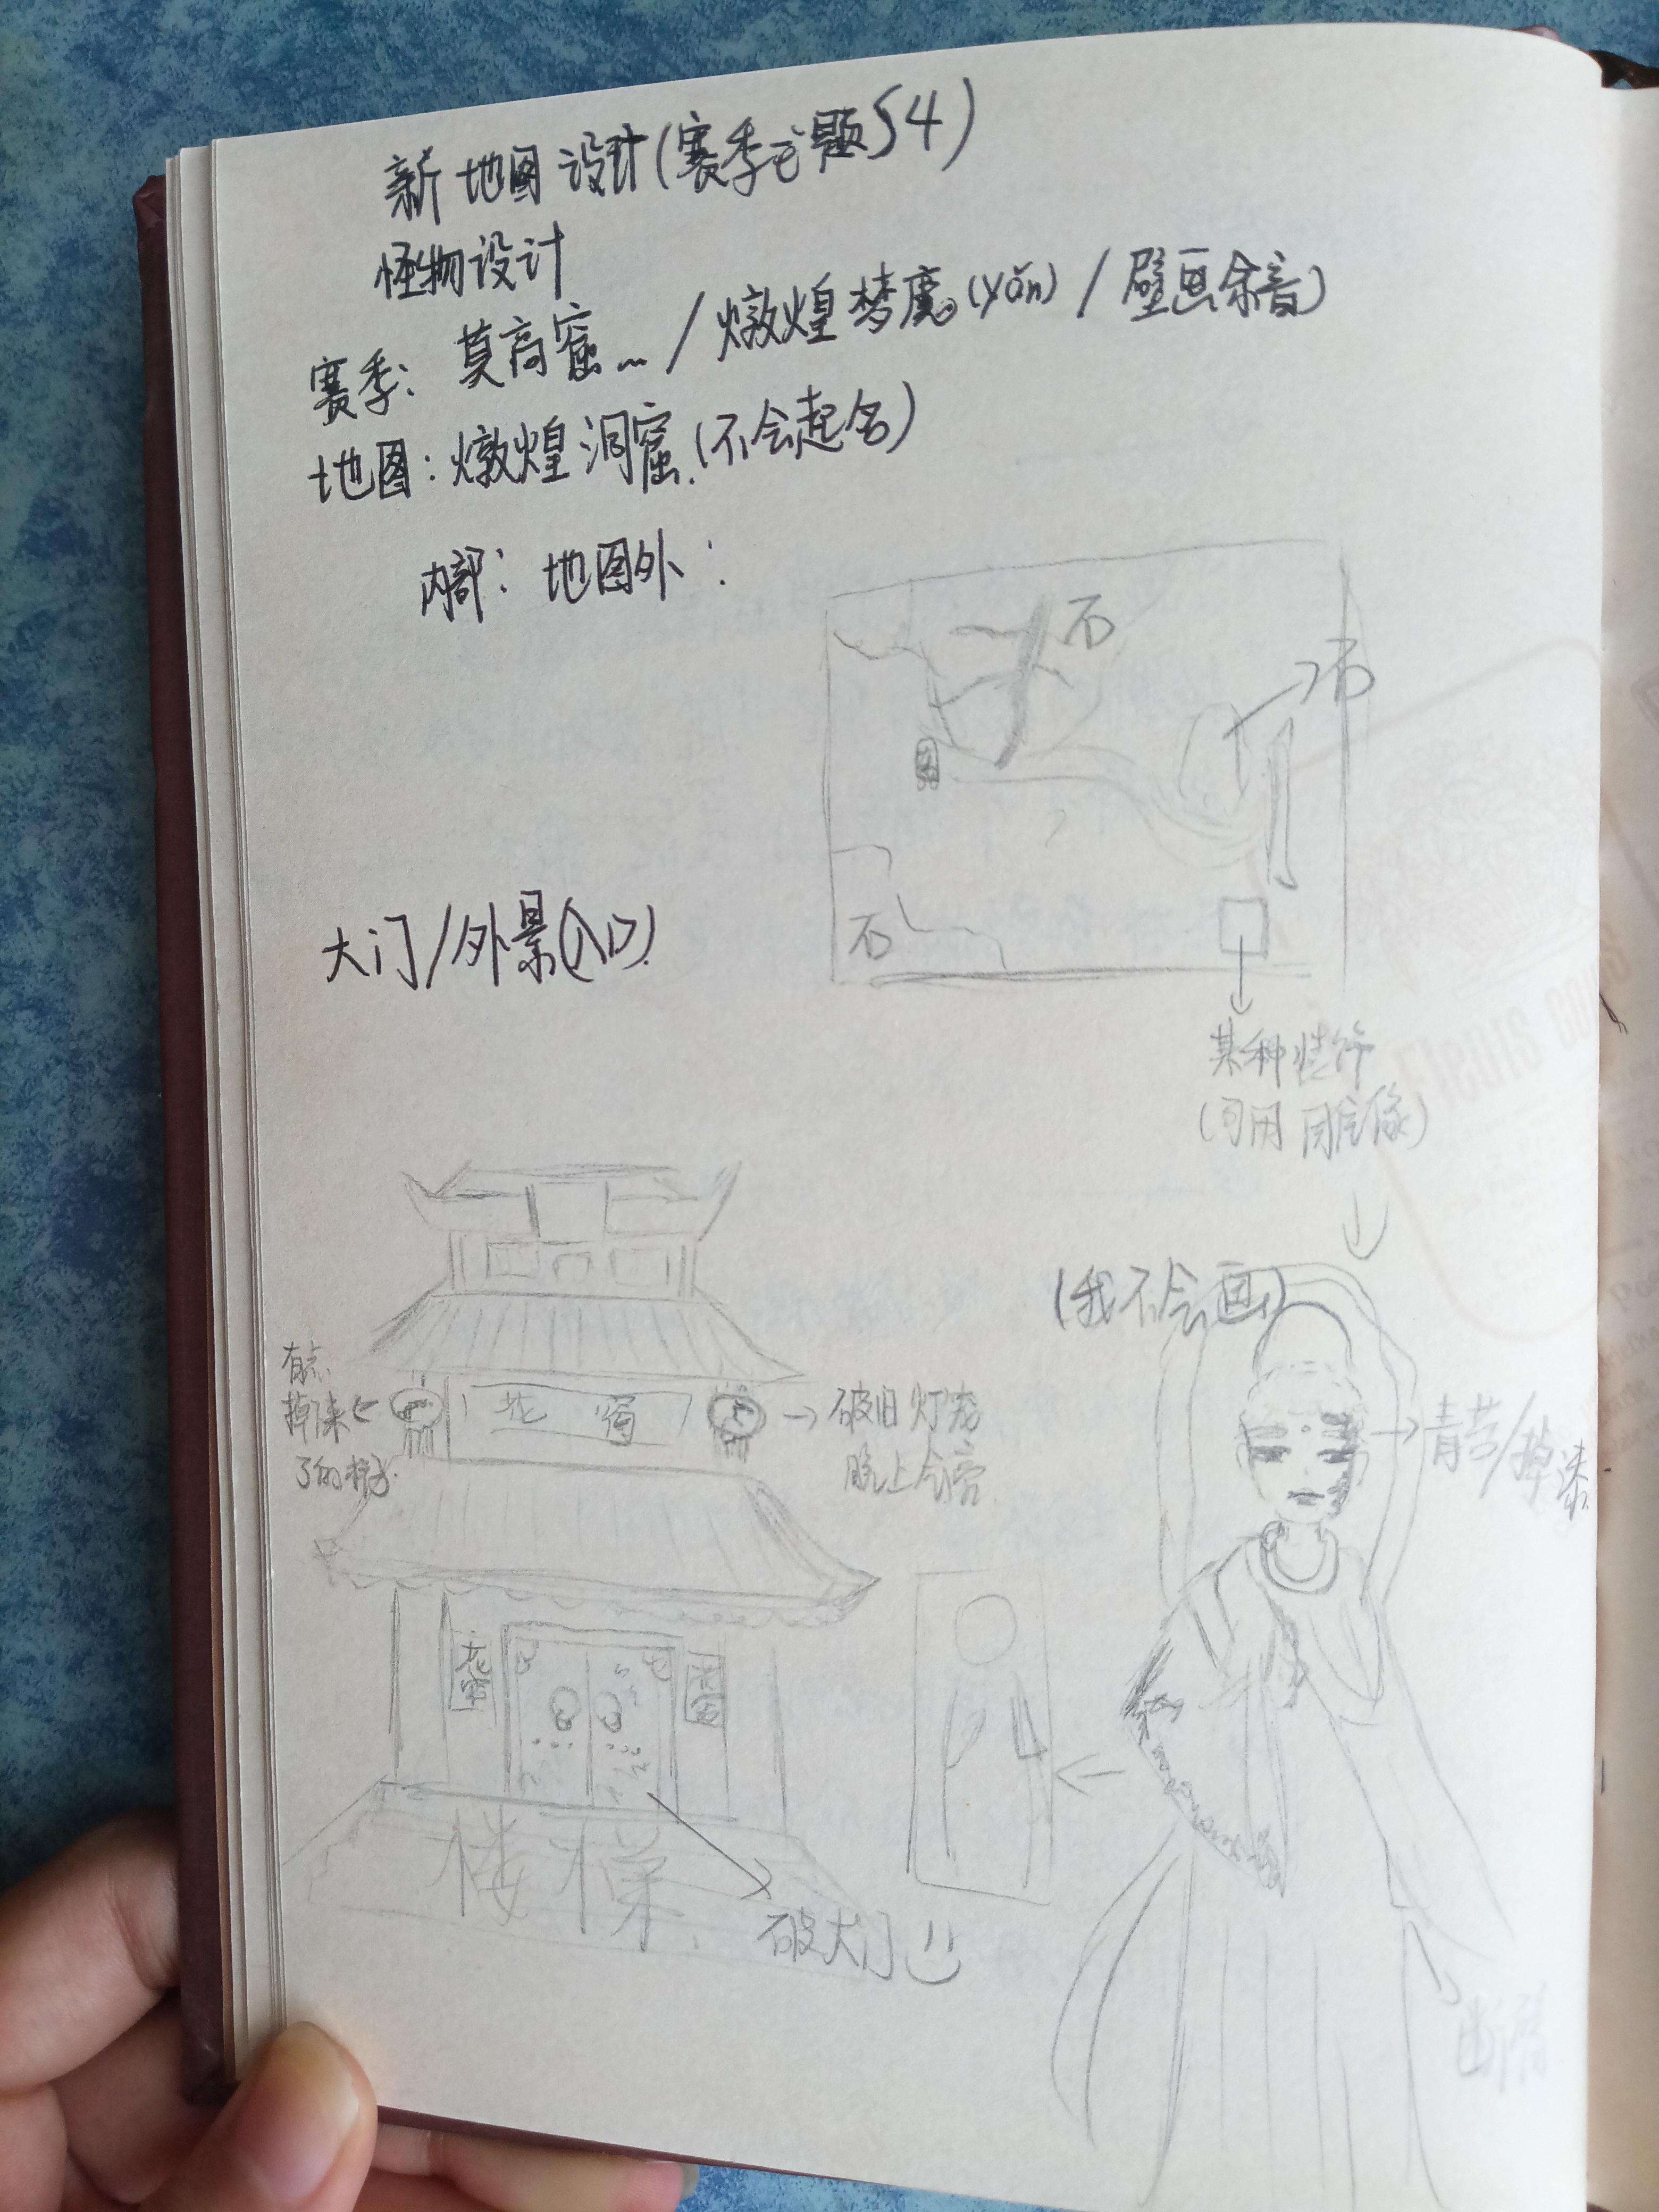 新地图设计(赛季主题S4)
怪物设计
赛季: 莫高窟... / 燉煌梦魇(yǎn) / 壁画余音)
地图: 燉煌洞窟.(不会起名)
内部: 地图外:
石
石
石
大门/外景(入口).
某种
(可用 像)
(我不会画)
有点
掉下来
了的
破旧灯笼
晚上会亮
青苔/掉漆
窟
楼梯
破大门
断臂